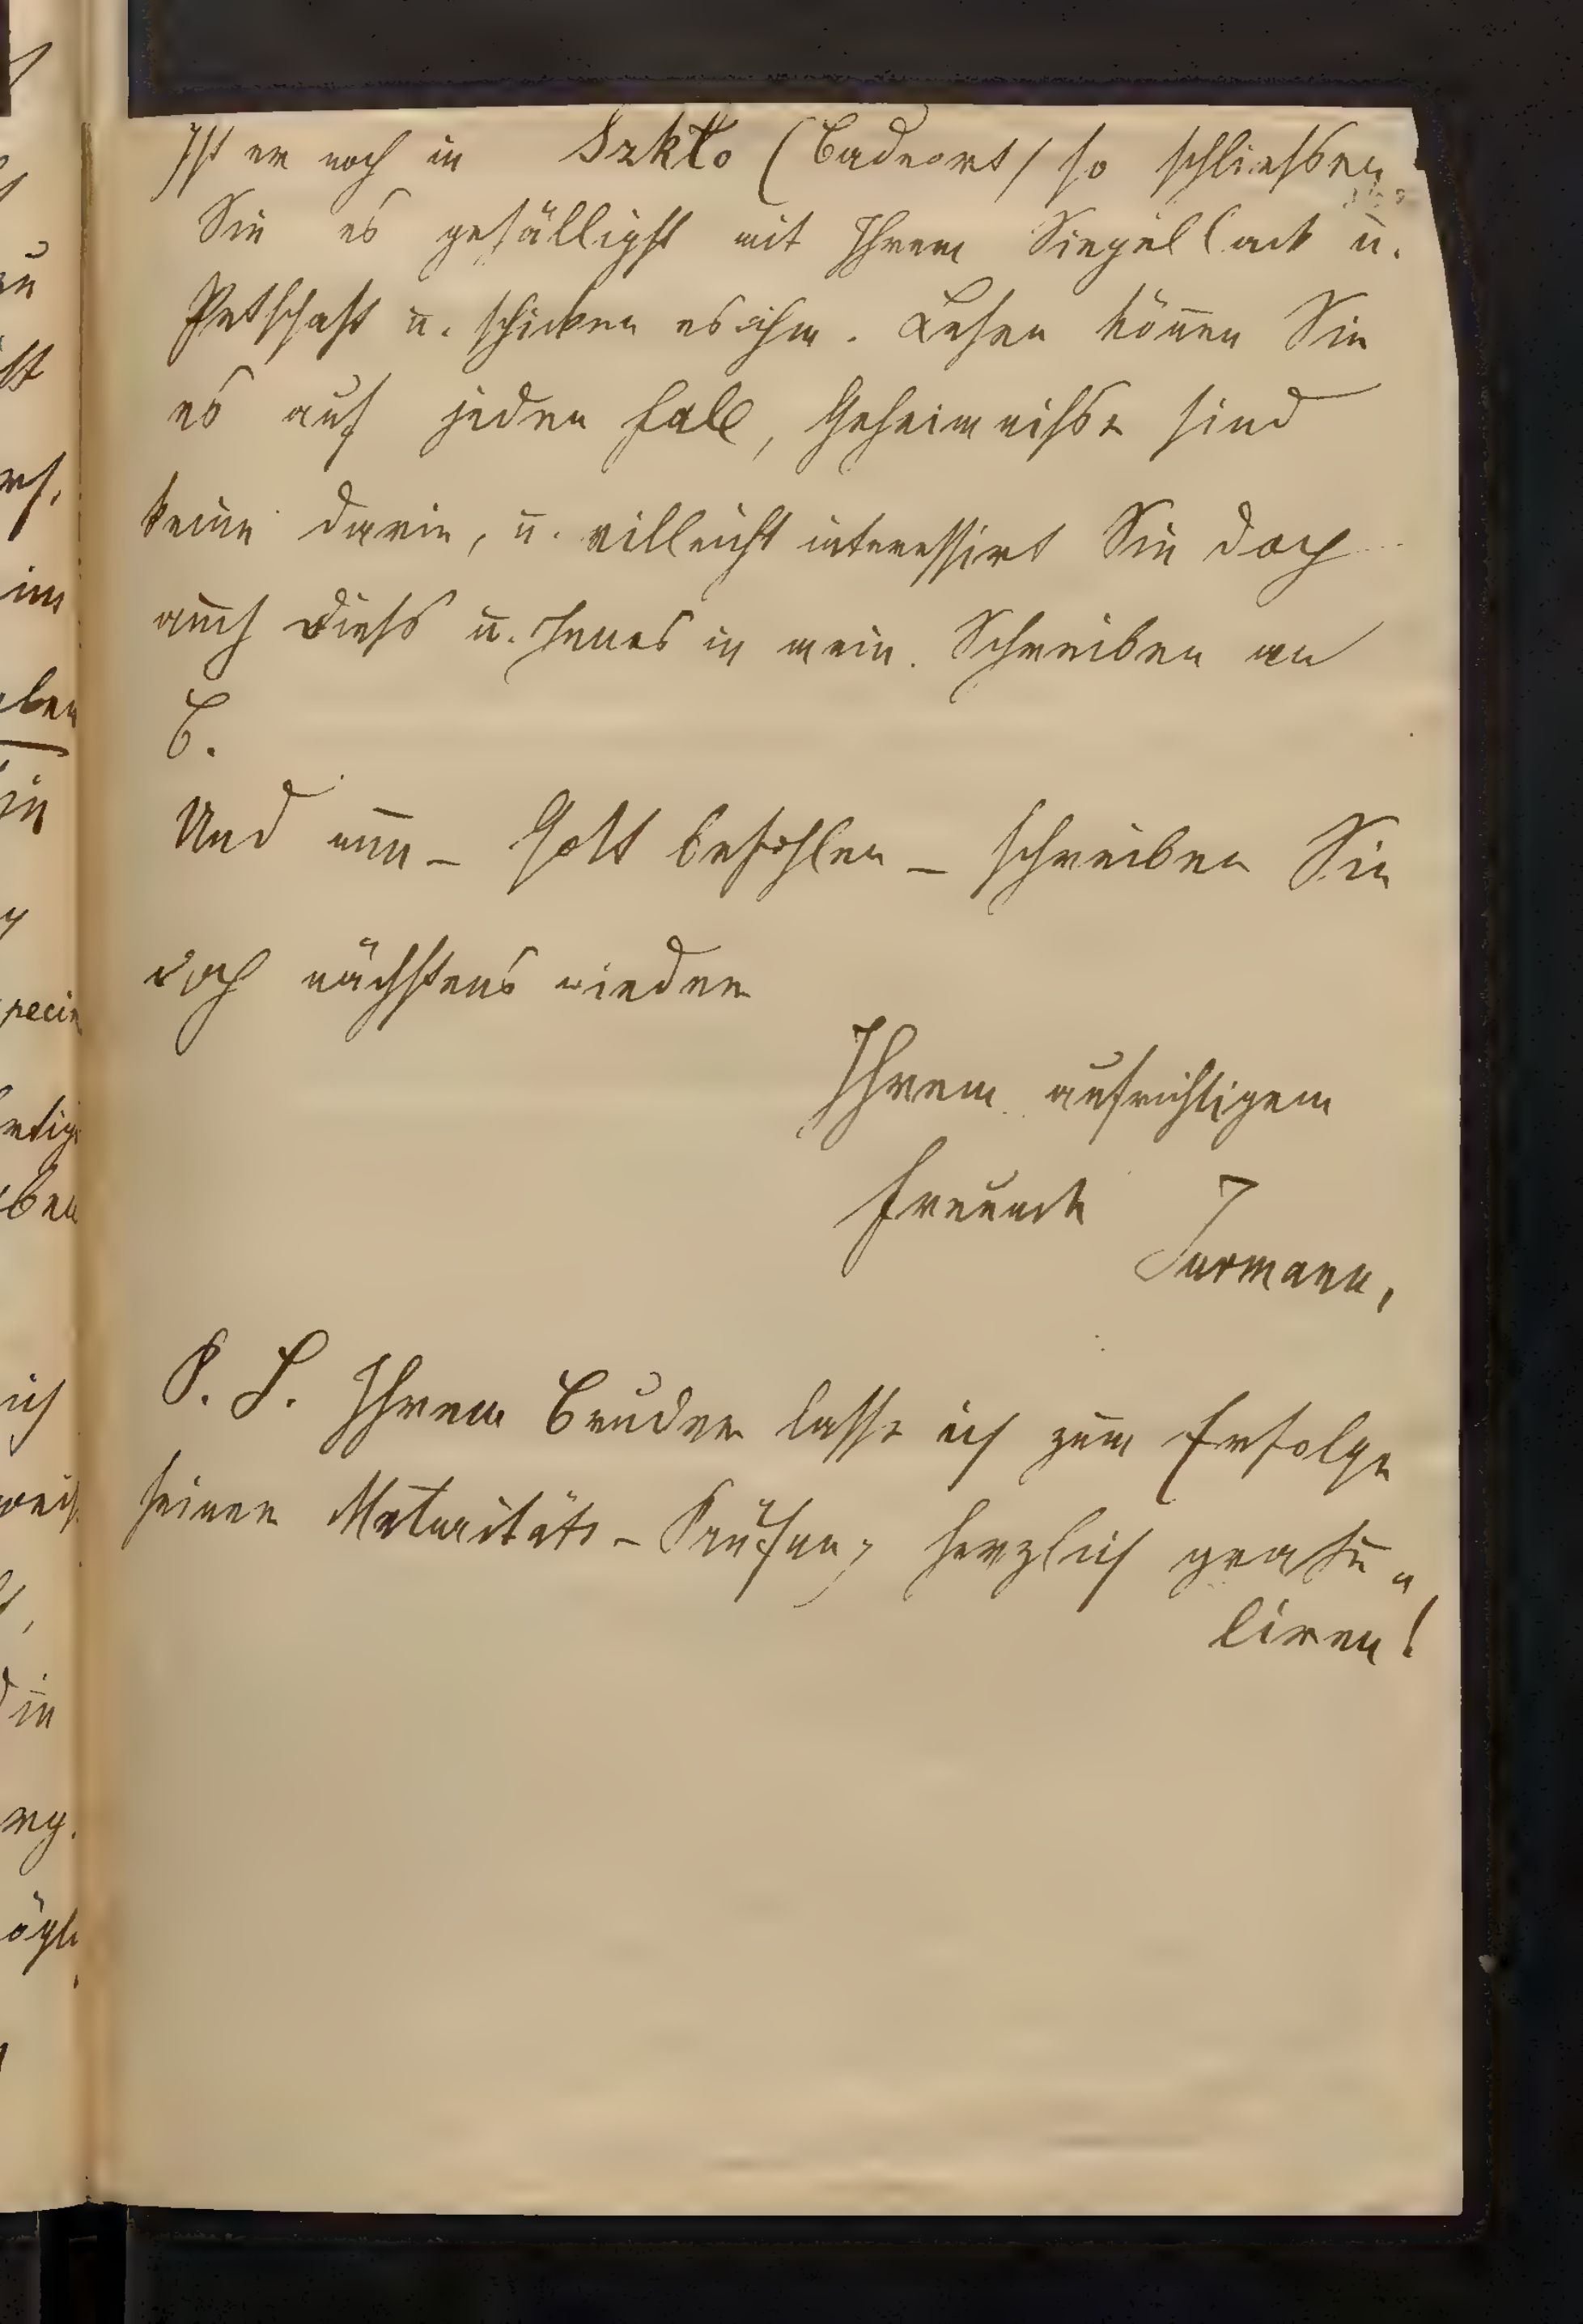 Ist er noch in Szkło (Badeort) so schließen
Sie es gefälligst mit Ihrem Siegellack u.
Petschaft u. schicken es ihm. Lesen können Sie
es auf jeden Fall, Geheimnisse sind
keine darin, u. villeicht interessirt Sie doch
auch Dieß u. Jenes in mein. Schreiben an
B.
Und nun – Gott befohlen – schreiben Sie
doch nächstens wieder
Ihrem aufrichtigem
Freunde
Turmann,
P. S. Ihrem Bruder lasse ich zum Erfolge
seiner Maturitäts-Prüfung herzlich gratu-
liren!